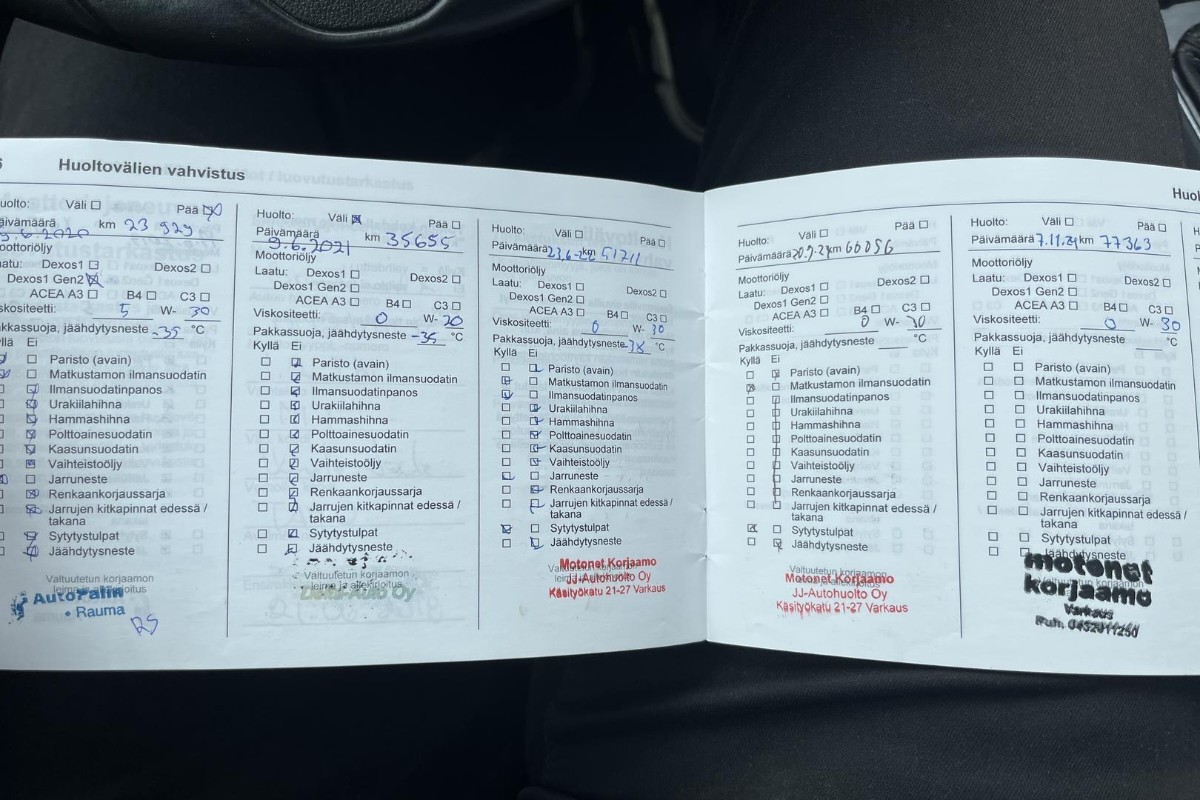 6 Huoltovälien vahvistus
uolto: Väli Pää
äivämäärä km 23 929
9.6.2020
Moottoriöljy
aatu: Dexos1 Dexos2
Dexos1 Gen2
ACEA A3 B4 C3
iskositeetti: 5 W- 30
akkassuoja, jäähdytysneste -35 °C
yllä Ei
Paristo (avain)
Matkustamon ilmansuodatin
Ilmansuodatinpanos
Urakiilahihna
Hammashihna
Polttoainesuodatin
Kaasunsuodatin
Vaihteistoöljy
Jarruneste
Renkaankorjaussarja
Jarrujen kitkapinnat edessä /
takana
Sytytystulpat
Jäähdytysneste
Valtuutetun korjaamon
leima ja allekirjoitus
AutoPalin
• Rauma
RS
Huolto: Väli Pää
Päivämäärä km 35655
9.6.2021
Moottoriöljy
Laatu: Dexos1 Dexos2
Dexos1 Gen2
ACEA A3 B4 C3
Viskositeetti: 0 W- 20
Pakkassuoja, jäähdytysneste -35 °C
Kyllä Ei
Paristo (avain)
Matkustamon ilmansuodatin
Ilmansuodatinpanos
Urakiilahihna
Hammashihna
Polttoainesuodatin
Kaasunsuodatin
Vaihteistoöljy
Jarruneste
Renkaankorjaussarja
Jarrujen kitkapinnat edessä /
takana
Sytytystulpat
Jäähdytysneste
Valtuutetun korjaamon
leima ja allekirjoitus
Oy
Huolto: Väli Pää
Päivämäärä km 51711
Moottoriöljy
Laatu: Dexos1 Dexos2
Dexos1 Gen2
ACEA A3 B4 C3
Viskositeetti: 0 W- 30
Pakkassuoja, jäähdytysneste -38 °C
Kyllä Ei
Paristo (avain)
Matkustamon ilmansuodatin
Ilmansuodatinpanos
Urakiilahihna
Hammashihna
Polttoainesuodatin
Kaasunsuodatin
Vaihteistoöljy
Jarruneste
Renkaankorjaussarja
Jarrujen kitkapinnat edessä /
takana
Sytytystulpat
Jäähdytysneste
Motonet Korjaamo
JJ-Autohuolto Oy
Käsityökatu 21-27 Varkaus
Huol
Huolto: Väli Pää
Päivämäärä km 66056
Moottoriöljy
Laatu: Dexos1 Dexos2
Dexos1 Gen2
ACEA A3 B4 C3
Viskositeetti: 0 W- 30
Pakkassuoja, jäähdytysneste °C
Kyllä Ei
Paristo (avain)
Matkustamon ilmansuodatin
Ilmansuodatinpanos
Urakiilahihna
Hammashihna
Polttoainesuodatin
Kaasunsuodatin
Vaihteistoöljy
Jarruneste
Renkaankorjaussarja
Jarrujen kitkapinnat edessä /
takana
Sytytystulpat
Jäähdytysneste
Motonet Korjaamo
JJ-Autohuolto Oy
Käsityökatu 21-27 Varkaus
Huolto: Väli Pää
Päivämäärä 7.11.24 km 77363
Moottoriöljy
Laatu: Dexos1 Dexos2
Dexos1 Gen2
ACEA A3 B4 C3
Viskositeetti: 0 W- 30
Pakkassuoja, jäähdytysneste °C
Kyllä Ei
Paristo (avain)
Matkustamon ilmansuodatin
Ilmansuodatinpanos
Urakiilahihna
Hammashihna
Polttoainesuodatin
Kaasunsuodatin
Vaihteistoöljy
Jarruneste
Renkaankorjaussarja
Jarrujen kitkapinnat edessä /
takana
Sytytystulpat
Jäähdytysneste
motonet
korjaamo
Varkaus